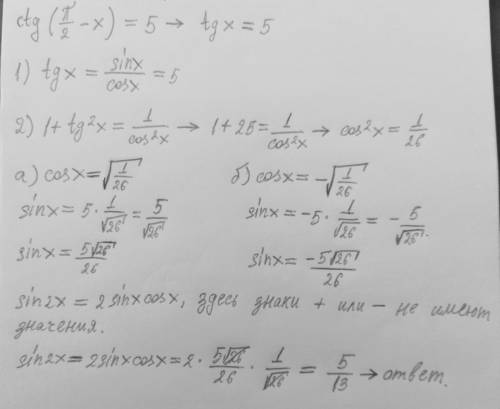 ctg (π/2 − x) = 5 → tg x = 5
1) tg x = sinx/cosx = 5
2) 1 + tg²x = 1/cos²x → 1 + 25 = 1/cos²x → cos²x = 1/26
а) cosx = √(1/26) б) cosx = −√(1/26)
sinx = 5 · 1/√26 = 5/√26 sinx = −5 · 1/√26 = − 5/√26.
sinx = 5√26/26 sinx = −5√26/26
sin2x = 2sinxcosx, здесь знаки + или − не имеют
значения.
sin2x = 2sinxcosx = 2 · 5√26/26 · 1/√26 = 5/13 → ответ.